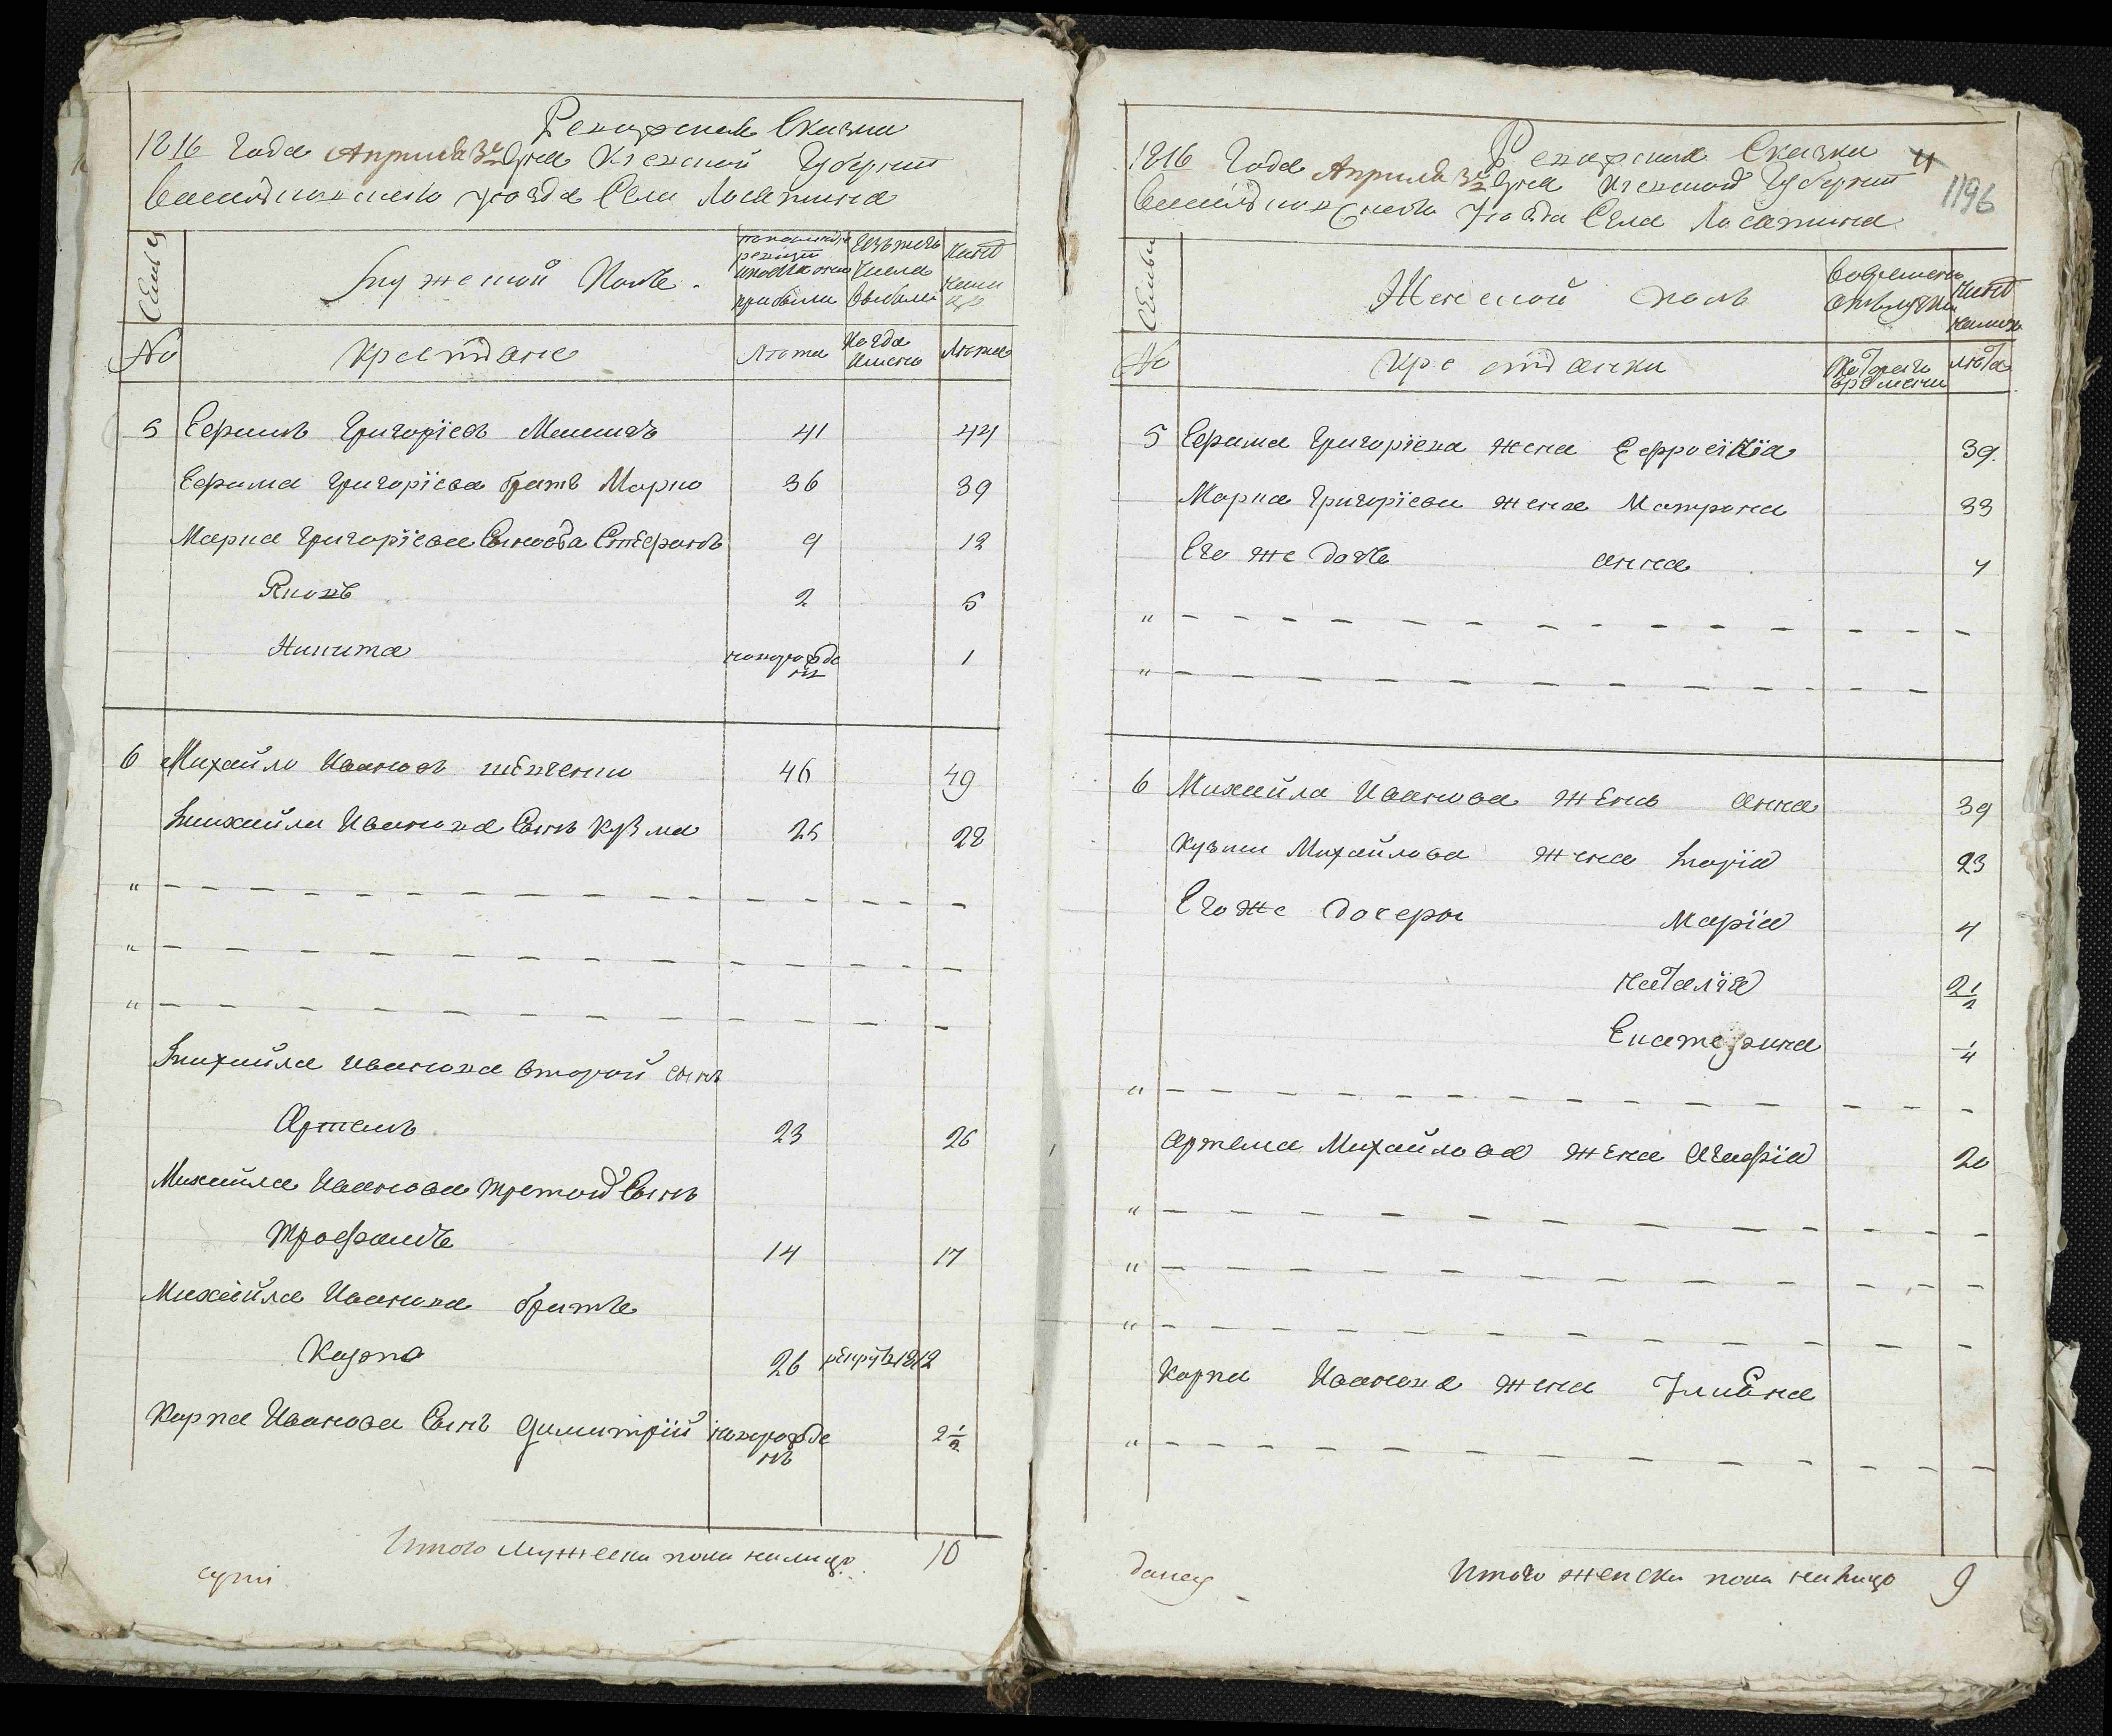 Ревизская Сказка
1816 Года Априля 3го Дня Киевской Губернии
Василковского уѣзда Села Лосятина
Семьи
Мужеской Полъ.
по последней ревизіи и после оной прибыли
Изъ того числа выбыли
Нынѣ налицо
№
Крестіане
Лѣта
Когда Имено
Лѣта
5 Ефимъ Григоріевъ 41 44
Ефима Григоріева братъ Марко 36 39
Марка Григоріева Сыновья Стефанъ 9 12
Яковъ 2 5
Никита новорожденъ 1
6 Михайло Ивановъ Шевченко 46 49
Михайла Иванова Сынъ Кузма 25 28
" - - - - - - - - - - - - - - - -
" - - - - - - - - - - - - - - - -
" - - - - - - - - - - - - - - - -
Михайла Иванова второй сынъ
Артемъ 23 26
Михайла Иванова третой Сынъ
Трофимъ 14 17
Михайла Иванова братъ
Карпо 26 рекрутъ 1812
Карпа Иванова Сынъ Димитрій новорожденъ 2 1/2
Итого Мужеска пола налицо 10
11
1196
Ревизская Сказка
1816 Года Априля 3го Дня Киевской Губерніи
Василковского Уѣзда Села Лосятина
Семьи
Женской полъ
Во временной отлучки
Нынѣ налицо
№
Крестіанки
Съ которого времени
лѣта
5 Ефима Григоріева жена Ефросінія 39.
Марка Григоріева жена Матрона 33
Его же дочь анна 4
" - - - - - - - - - - - - - - - -
" - - - - - - - - - - - - - - - -
6 Михайла Иванова жена анна 39
Кузми Михайлова жена Марія 23
Его же дочеры Марія 4
наталія 2 1/2
Екатерина 1/4
" - - - - - - - - - - - - - - - -
Артема Михайлова жена Агафія 20
" - - - - - - - - - - - - - - - -
" - - - - - - - - - - - - - - - -
" - - - - - - - - - - - - - - - -
Карпа Иванова жена Улиана
" - - - - - - - - - - - - - - - -
Итого женска пола налицо 9